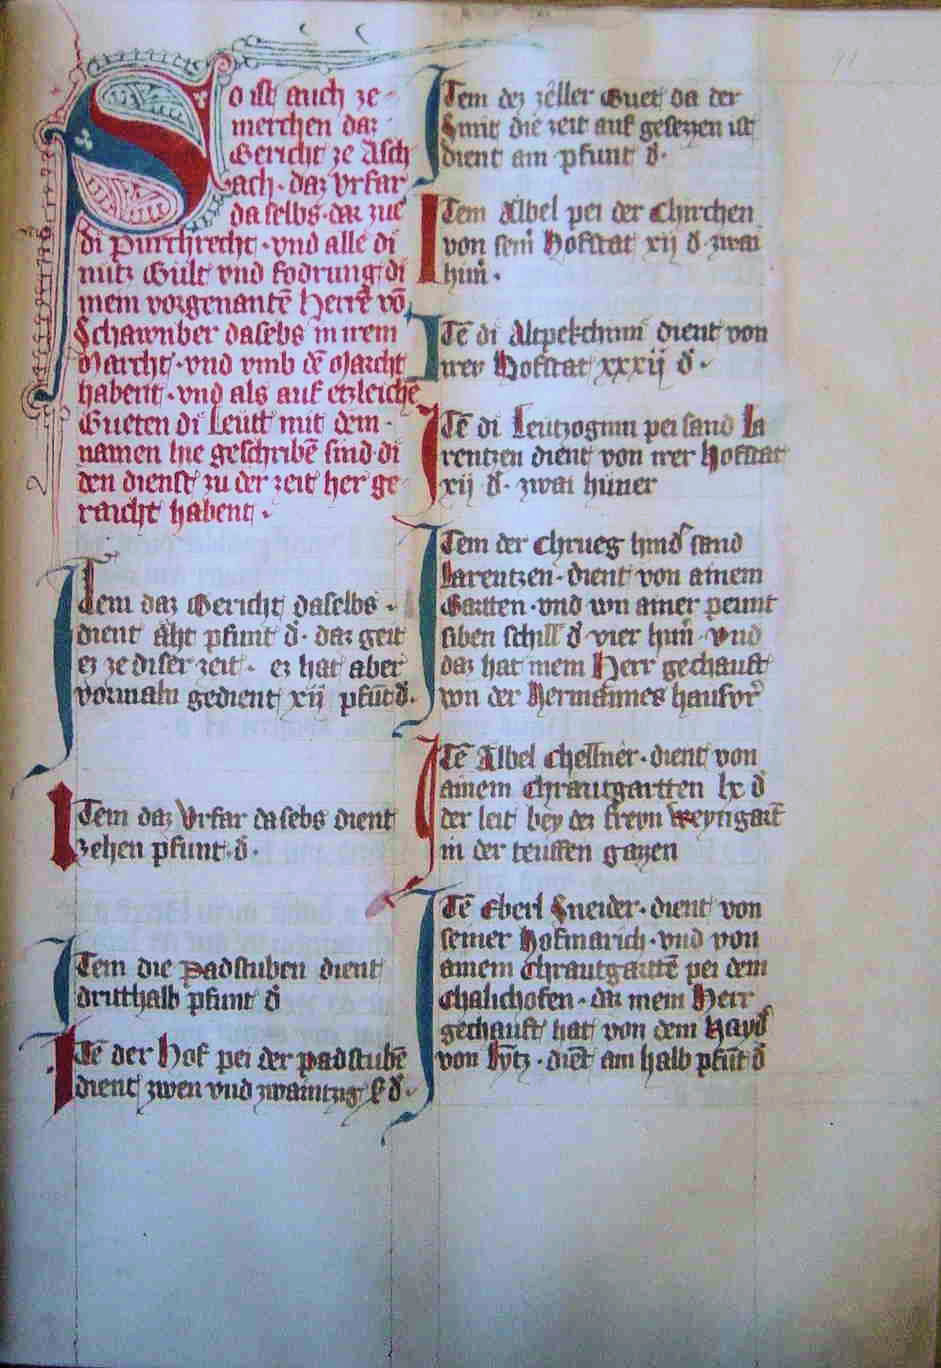 So ist auch ze
merchen daz
Gericht ze Asch
ach · daz Vrfar
da selbs · daz zue
di Purchrecht · vnd alle di
nutz Gült vnd fodrung di
mein vorgenantē Herrē vō
Schawnber daselbs in irem
Marcht · vnd vmb dē Marcht
habent · vnd als auf etzleichē
Gueten di Leutt mit dem ·
namen hie geschribē sind di
den dienst zu der zeit her ge
raicht habent ·
Item daz Gericht daselbs ·
dient äht pfunt d̄ · daz geit
ez ze diser zeit · ez hat aber
vormaln gedient xij pfūt d̄.
Item daz Vrfar dasebs dient
zehen pfunt · d̄ ·
Item die Padstuben dient
dritthalb pfunt d̄
Itē der Hof pei der padstubē
dient zwen vnd zwaintzig d̄ ·
Item dez zeller Guet da der
Smit die zeit auf gesezzen ist
dient am pfunt d̄ ·
Item Albel pei der Chirchen
von seim̄ Hofstat xij d̄ zwai
hun̄ ·
Itē di Altpekchinn dient von
irer Hofstat xxxij d̄ ·
Itē di Leutzoginn pei sand La
rentzen dient von irer Hofstat
xij d̄ · zwai hüner
Item der Chrueg hind̄ sand
Larentzen · dient von ainem
Gartten · vnd von ainer peunt
siben schill d̄ vier hun̄ · vnd
daz hat mein Herr gechauft
von der Hermannes hausvr̄
Itē Albel Chellner · dient von
ainem Chrautgartten lx d̄
der leit bey dez freyn weyngart̄
in der teuffen gazzen
Itē Eberl Sneider · dient von
seiner Hofmarich · vnd von
ainem Chrautgarttē pei dem
Chalichofen · daz mein Herr
gechauft hat von dem Hayd̄
von · diēt ain halb pfūt d̄